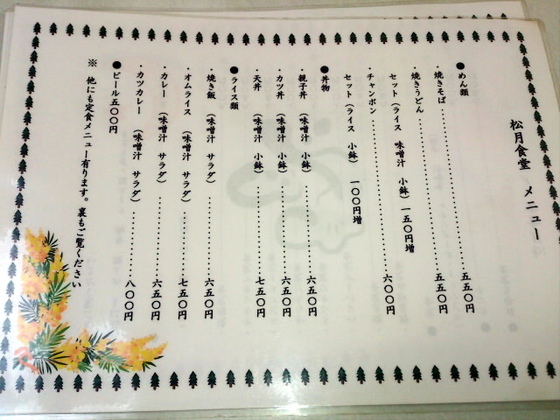 松月食堂 メニュー
●めん類
・焼きそば…………………五五〇円
・焼きうどん…………………五五〇円
セット(ライス 味噌汁 小鉢)一五〇円増
・チャンポン…………………六〇〇円
セット(ライス 小鉢) 一〇〇円増
●丼物
・親子丼(味噌汁 小鉢)…………六五〇円
・カツ丼(味噌汁 小鉢)…………六五〇円
・天丼 (味噌汁 小鉢)…………七五〇円
●ライス類
・焼き飯(味噌汁 サラダ)…………六五〇円
・オムライス (味噌汁 サラダ)…………七五〇円
・カレー (味噌汁 サラダ)…………六五〇円
・カツカレー (味噌汁 サラダ)…………八〇〇円
●ビール五〇〇円
※ 他にも定食メニュー有ります。裏もご覧ください